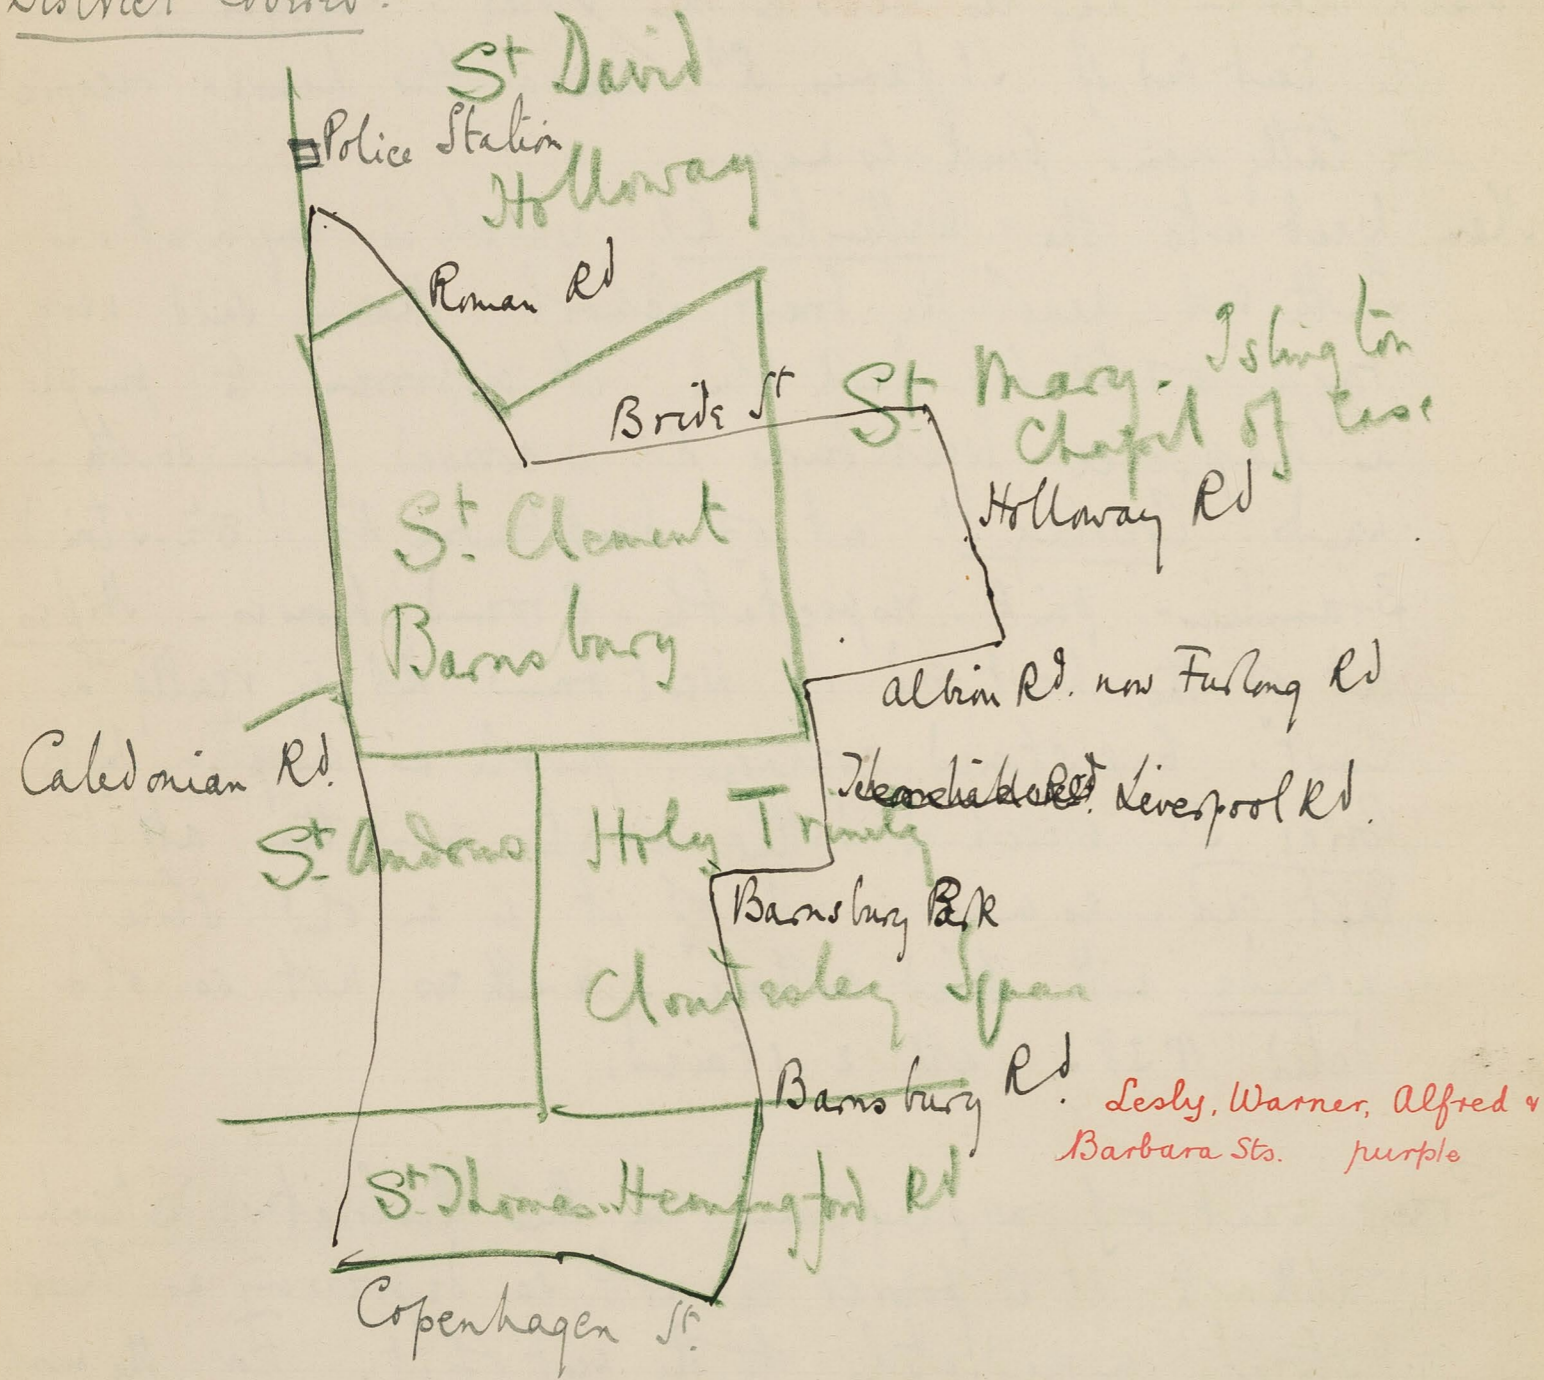 District
St David
Police Station
Holloway
Roman Rd
St Mary. Islington
Chapel of Ease
Bride St
Holloway Rd
St. Clement
Barnsbury
Albion Rd. now Furlong Rd
Caledonian Rd.
Liverpool Rd.
St. Andrews
Holy Trinity
Barnsbury Park
Cloudesley Square
Barnsbury Rd.
Lesly, Warner, Alfred &
Barbara Sts. purple
St. Thomas. Hemingford Rd
Copenhagen St.